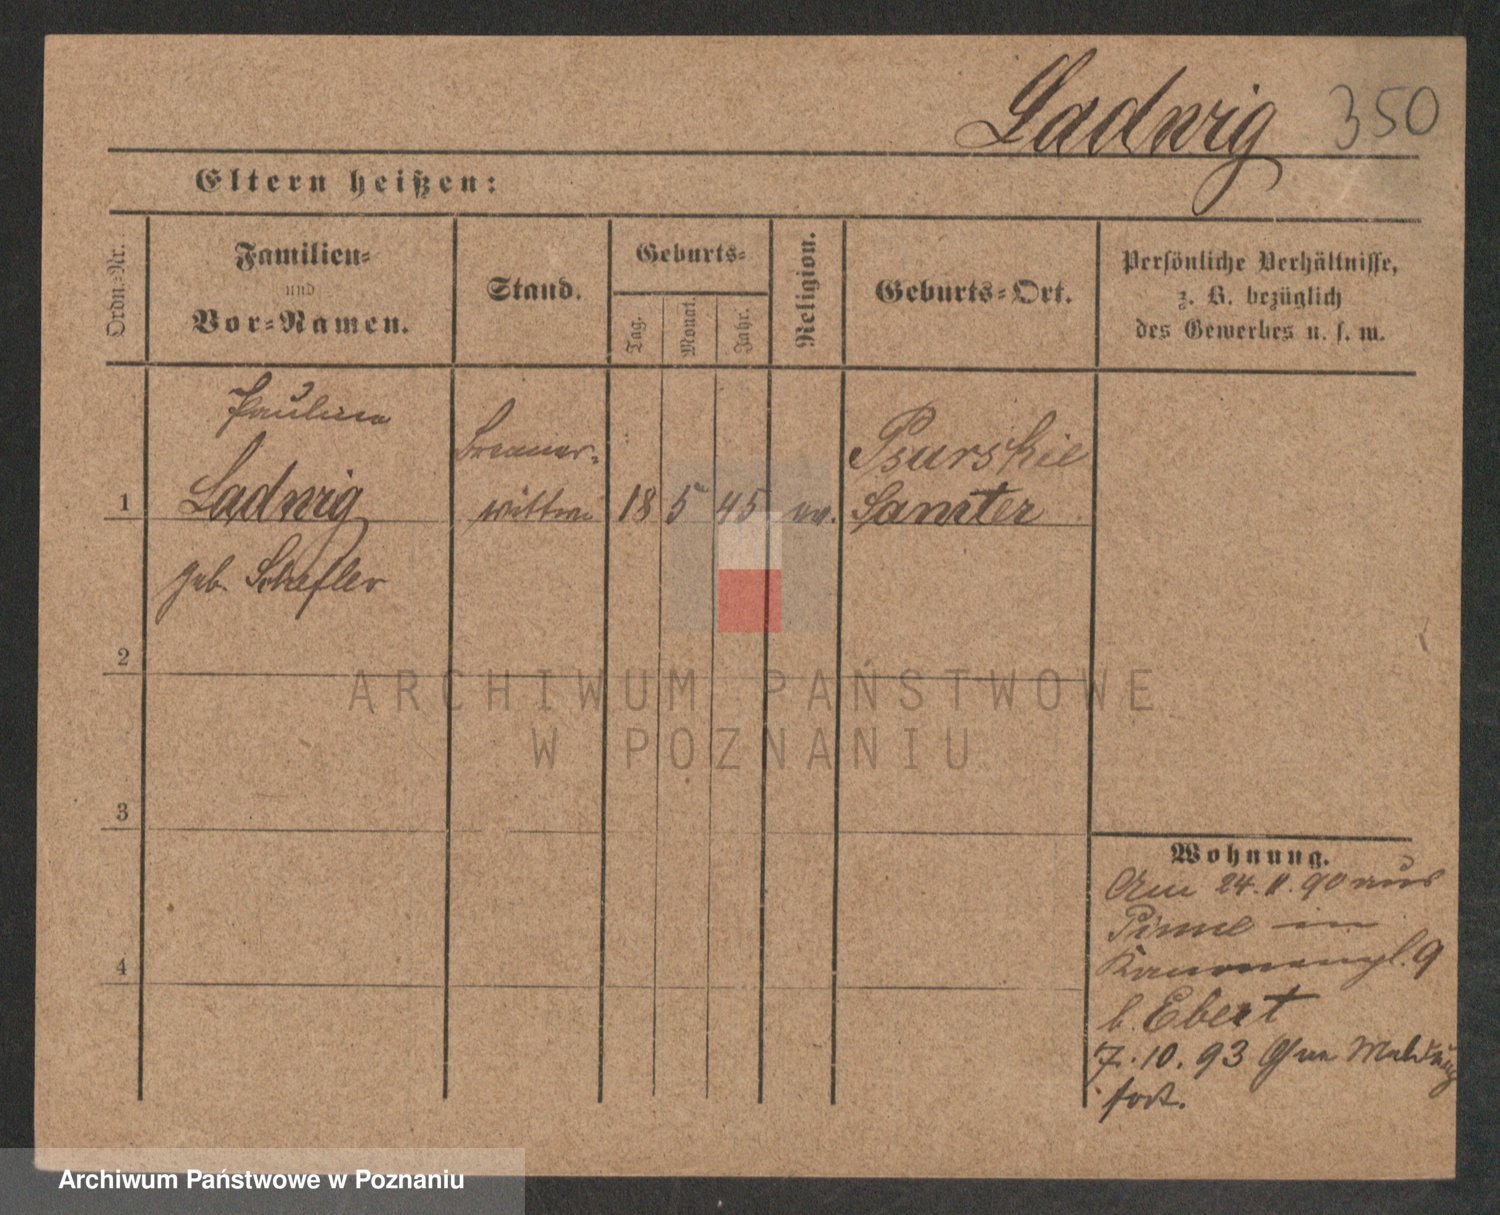 Ladwig 350
Eltern heißen:
Ordn.-Nr.
Familien-
und
Vor-Namen.
Stand.
Geburts-
Tag.
Monat.
Jahr.
Religion.
Geburts-Ort.
Persönliche Verhältnisse,
z. B. bezüglich
des Gewerbes u. s. w.
Paulina
1 Ladwig
geb. Schefler
wittwe
18 5 45 ev.
Psurskie
Samter
2
3
4
Wohnung.
Am 24.11.90 aus
Pinne in
Kanonenpl. 9
b. Ebert
7.10.93 Ohne Meldung
fort.
ARCHIWUM PAŃSTWOWE
W POZNANIU
Archiwum Państwowe w Poznaniu